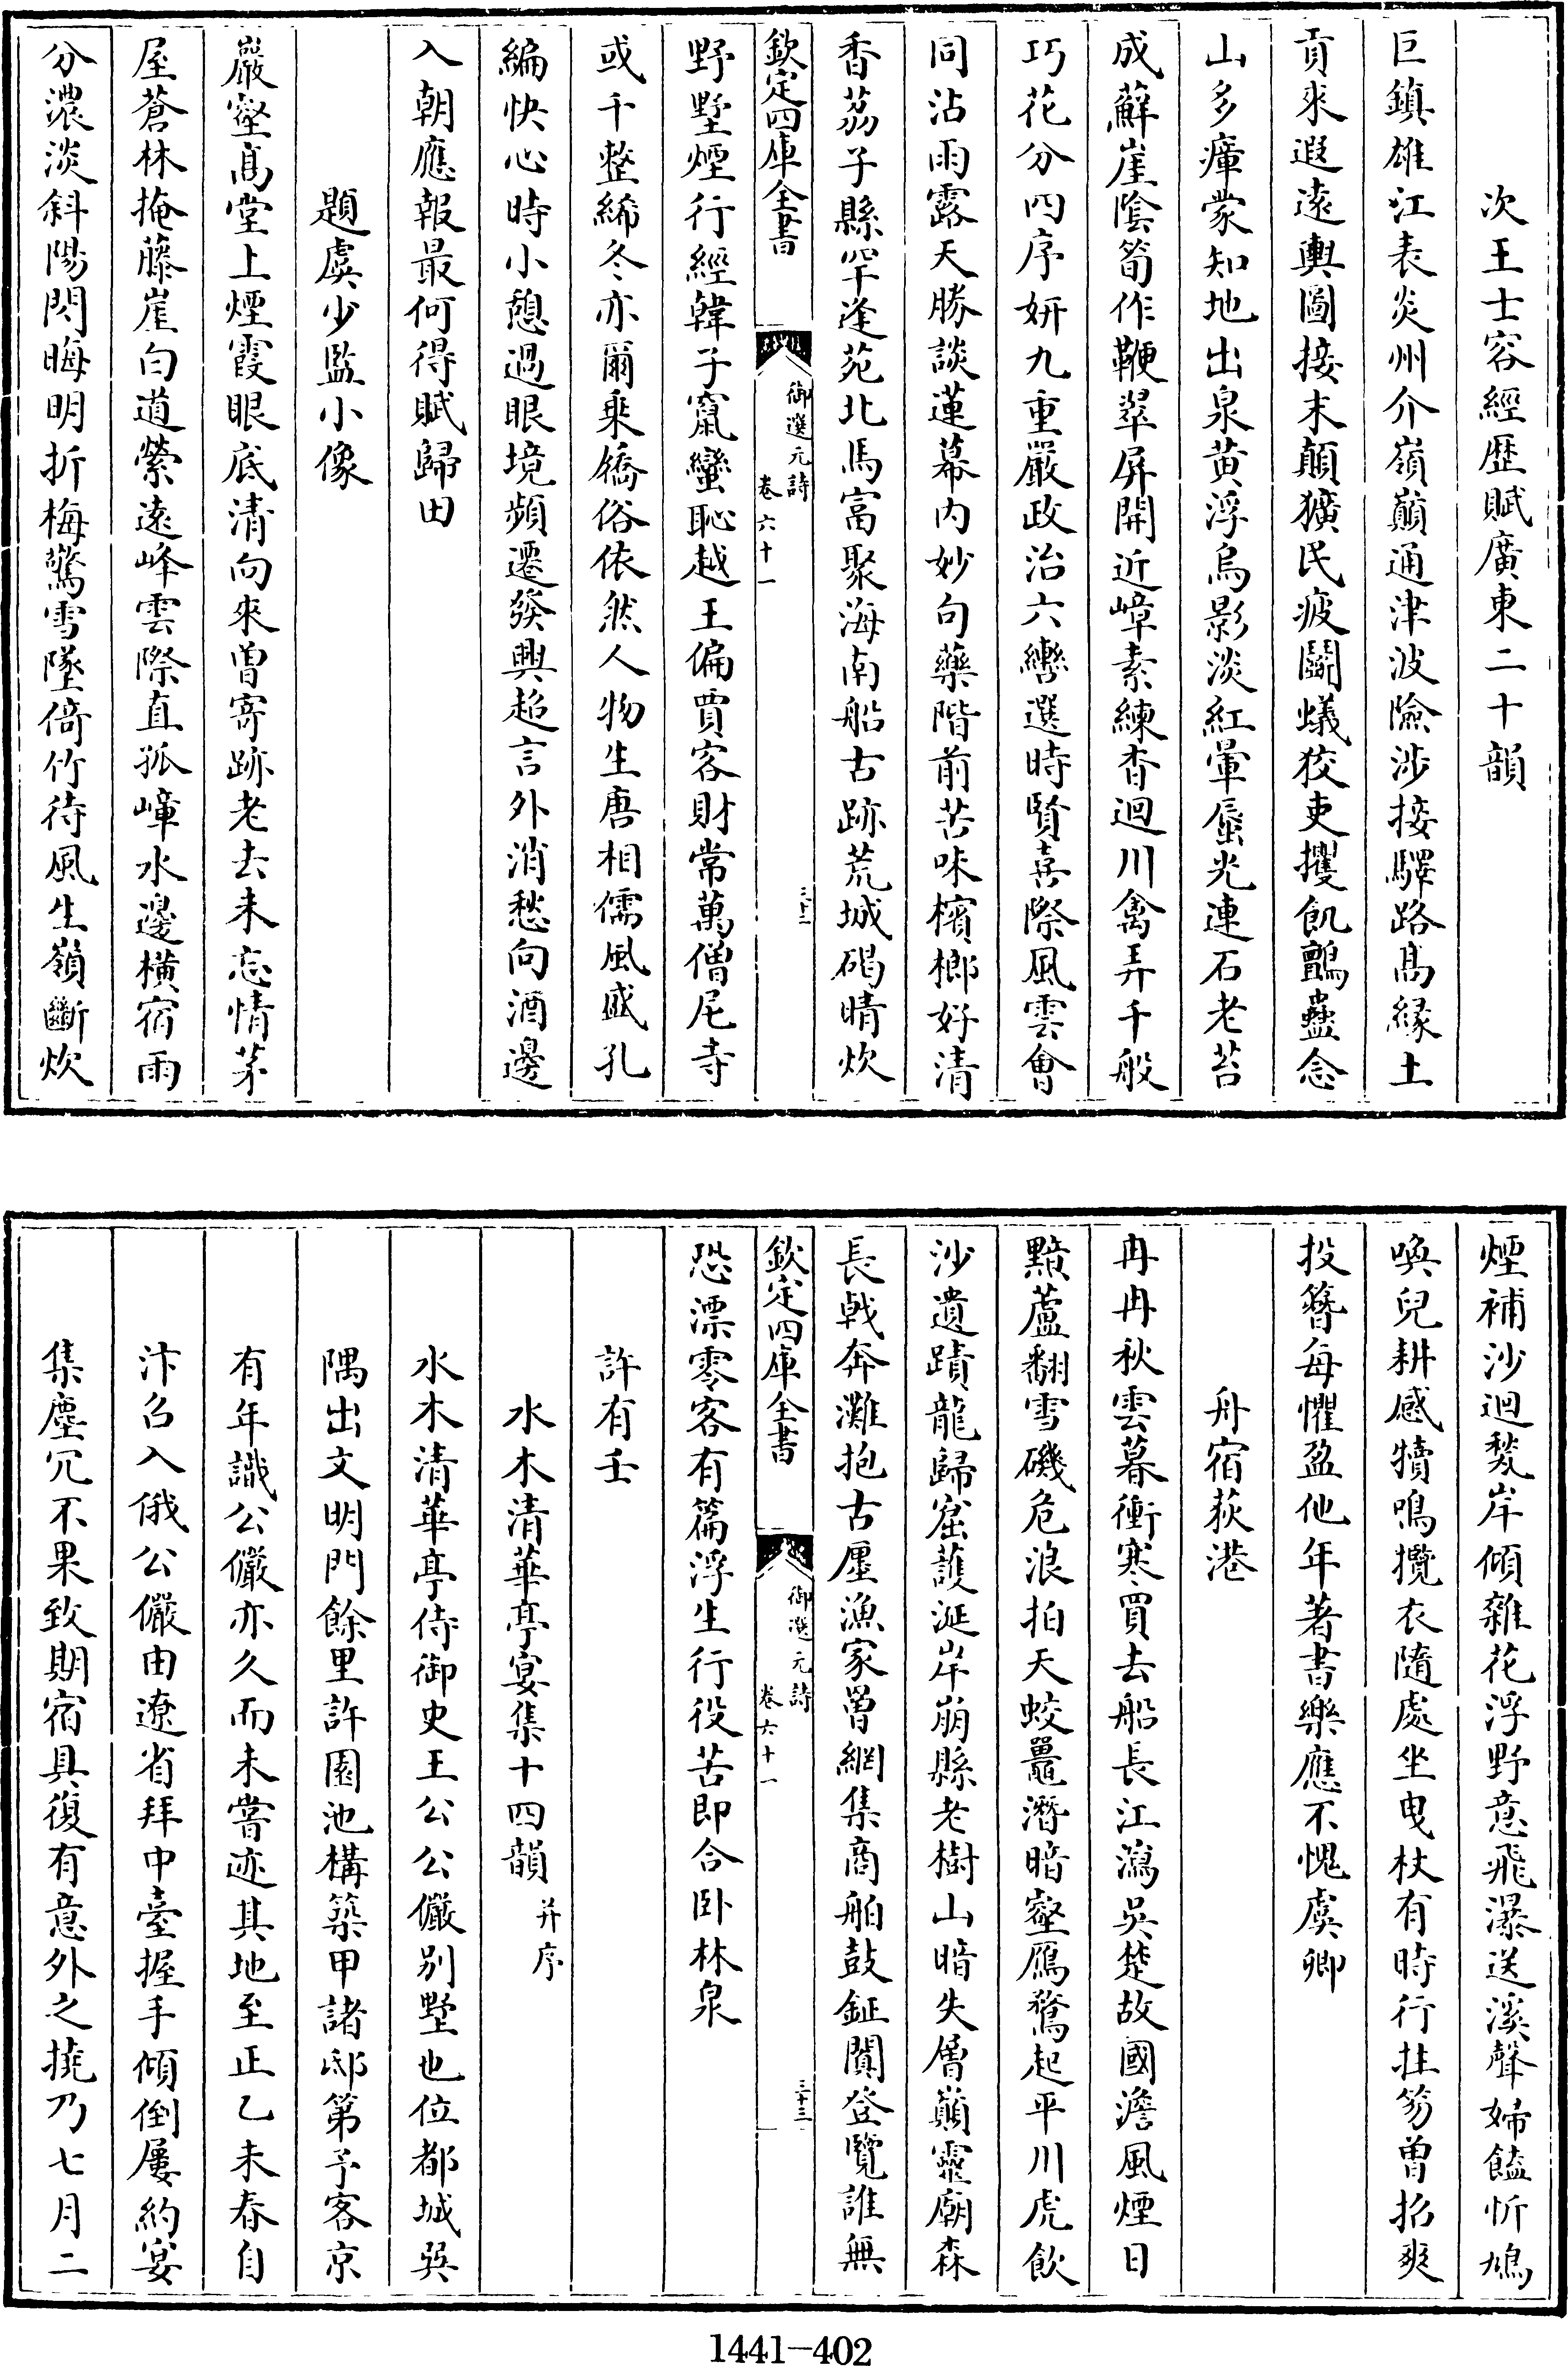 次王士容經歷賦廣東二十韻
巨鎮雄江表炎州介嶺巔通津波險涉接驛路高緣土
貢來遐遠輿圖接末顛獷民疲鬭蟻狡吏攫飢鸇蠱念
山多瘴蒙知地出泉黃浮烏影淡紅暈蜃光連石老苔
成蘚崖陰筍作鞭翠屏開近嶂素練杳迴川禽弄千般
巧花分四序妍九重嚴政治六轡選時賢喜際風雲會
同沾雨露天勝談蓮幕內妙句藥階前苦味檳榔好清
香荔子縣罕逢苑北馬富聚海南船古跡荒城碣晴炊
欽定四庫全書
御選元詩
卷六十一
三十二
野墅煙行經韓子竄蠻恥越王偏賈客財常萬僧尼寺
或千整絺冬亦爾乗繑俗依然人物生唐相儒風盛孔
編快心時小憩過眼境頻遷發興超言外消愁向酒邊
入朝應報最何得賦歸田
題虞少監小像
巖壑高堂上煙霞眼底清向來曾寄跡老去未忘情茅
屋蒼林掩藤崖白道縈遠峰雲際直孤嶂水邊橫宿雨
分濃淡斜陽閃晦明折梅驚雪墜倚竹待風生嶺斷炊
煙補沙迴㸑岸傾雜花浮野意飛瀑送溪聲婦饁忻鳩
喚兒耕感犢鳴攬衣隨處坐曳杖有時行拄笏曾招爽
投簪每懼盈他年著書樂應不愧虞卿
舟宿荻港
冉冉秋雲暮衝寒買去船長江瀉吳楚故國澹風煙日
黯蘆翻雪磯危浪拍天蛟鼉潛暗壑鴈鶩起平川虎飲
沙遺蹟龍歸窟護涎岸崩縣老樹山暗失層巔靈廟森
長戟奔灘抱古壥漁家罾網集商舶鼓鉦闐登覽誰無
欽定四庫全書
御選元詩
卷六十一
三十三
恐漂零客有篇浮生行役苦即合卧林泉
許有壬
水木清華亭宴集十四韻并序
水木清華亭侍御史王公公儼別墅也位都城巽
隅出文明門餘里許園池構築甲諸邸第予客京
有年識公儼亦久而未嘗迹其地至正乙未春自
汴召入俄公儼由遼省拜中臺握手傾倒屢約宴
集塵冗不果致期宿具復有意外之撓乃七月二
1441-402